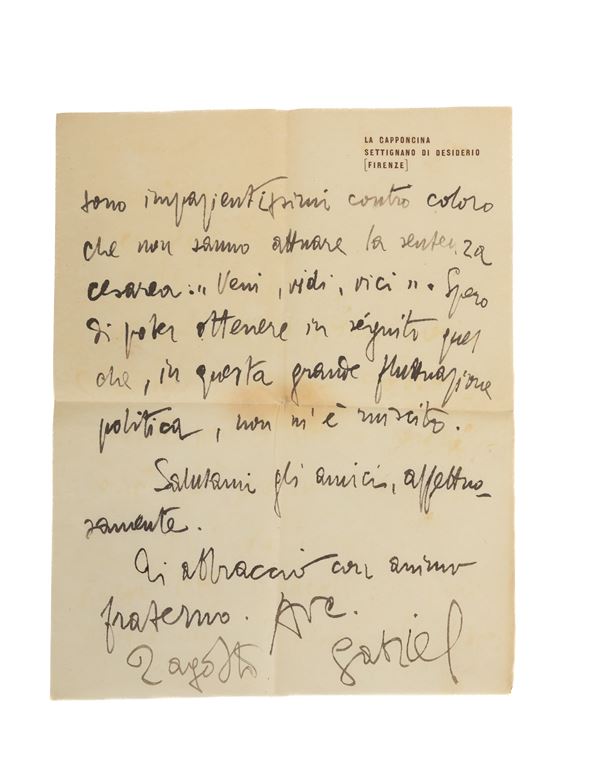 LA CAPPONCINA
SETTIGNANO DI DESIDERIO
[FIRENZE]
sono impazientissimi contro coloro
che non sanno attuare la sentenza
cesarea: „ Veni, vidi, vici ". Spero
di poter ottenere in séguito quel
che, in questa grande fluttuazione
politica, non m'è riuscito.
Salutami gli amici, affettuo-
samente.
Ti abbraccio con animo
fraterno. Ave.
2 agosto Gabriel